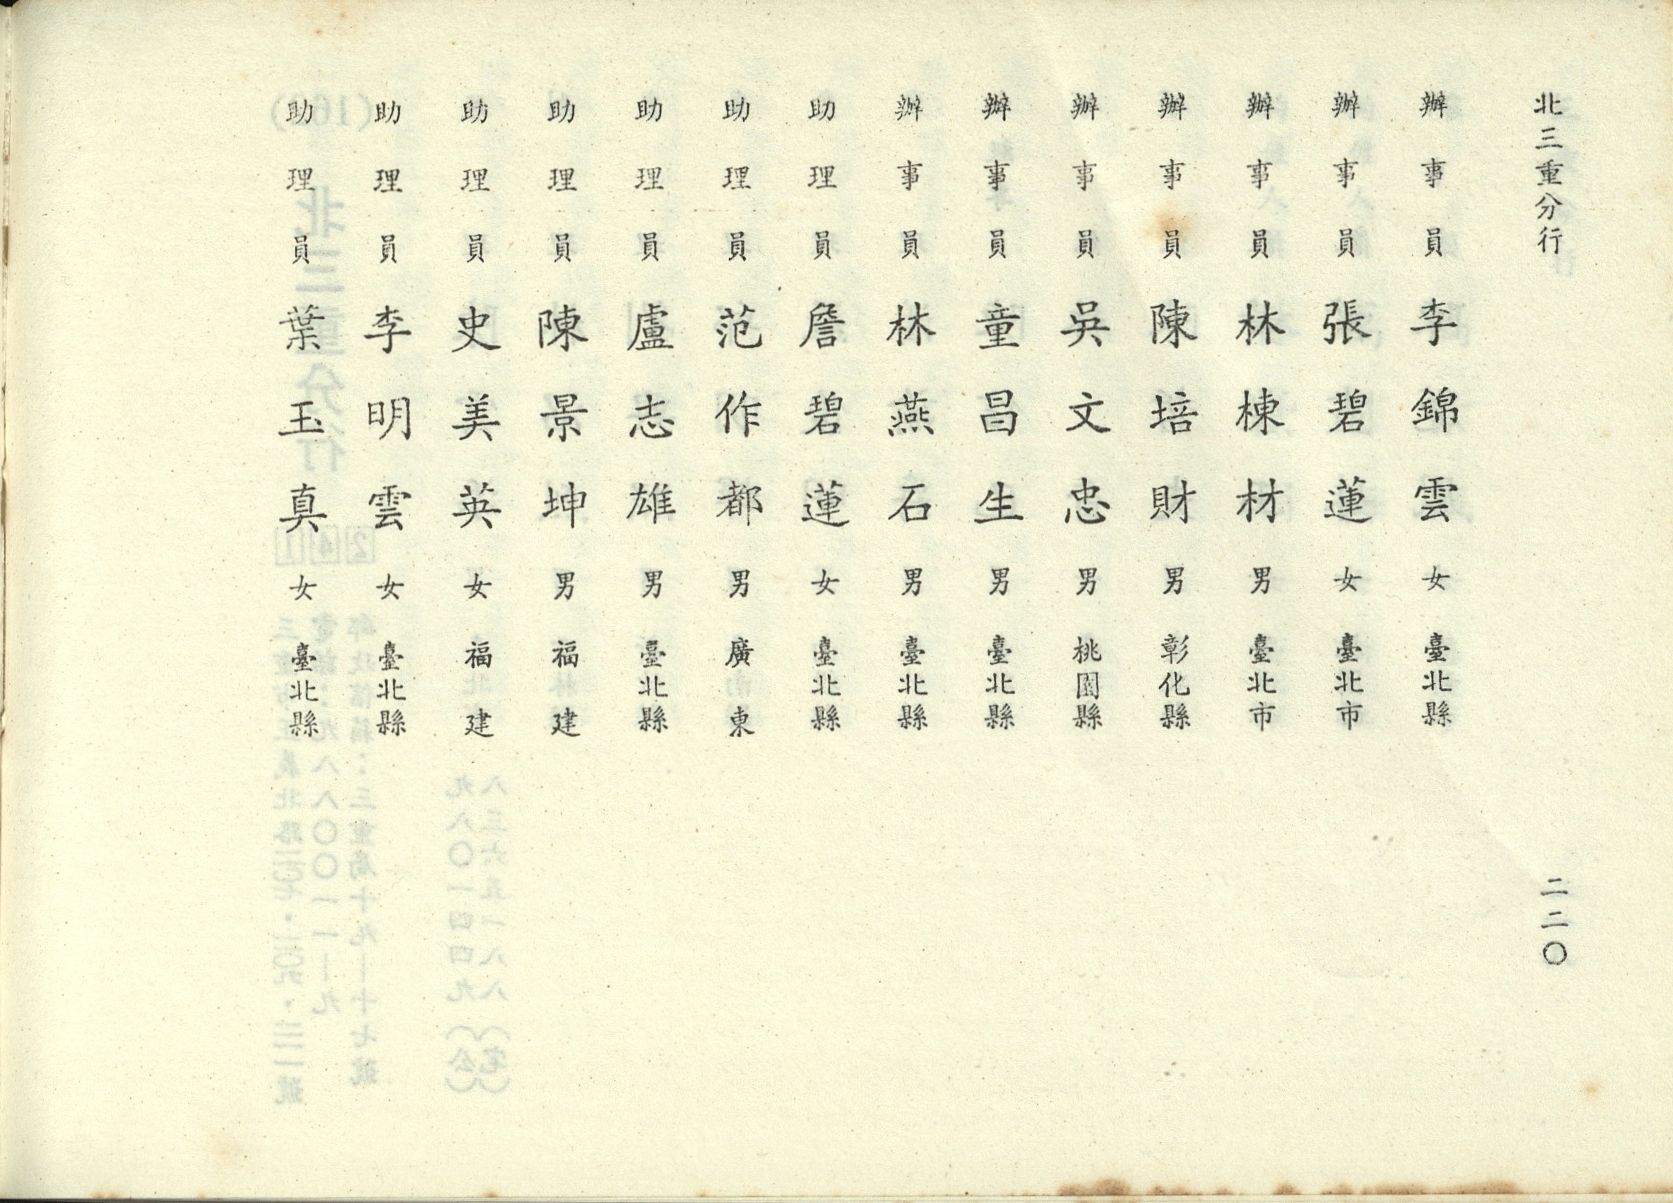 北三重分行
辦事員 李錦雲 女 臺北縣
辦事員 張碧蓮 女 臺北市
辦事員 林棟材 男 臺北市
辦事員 陳培財 男 彰化縣
辦事員 吳文忠 男 桃園縣
辦事員 童昌生 男 臺北縣
辦事員 林燕石 男 臺北縣
助理員 詹碧蓮 女 臺北縣
助理員 范作都 男 廣東
助理員 盧志雄 男 臺北縣
助理員 陳景坤 男 福建
助理員 史美英 女 福建
助理員 李明雲 女 臺北縣
助理員 葉玉真 女 臺北縣
二二〇